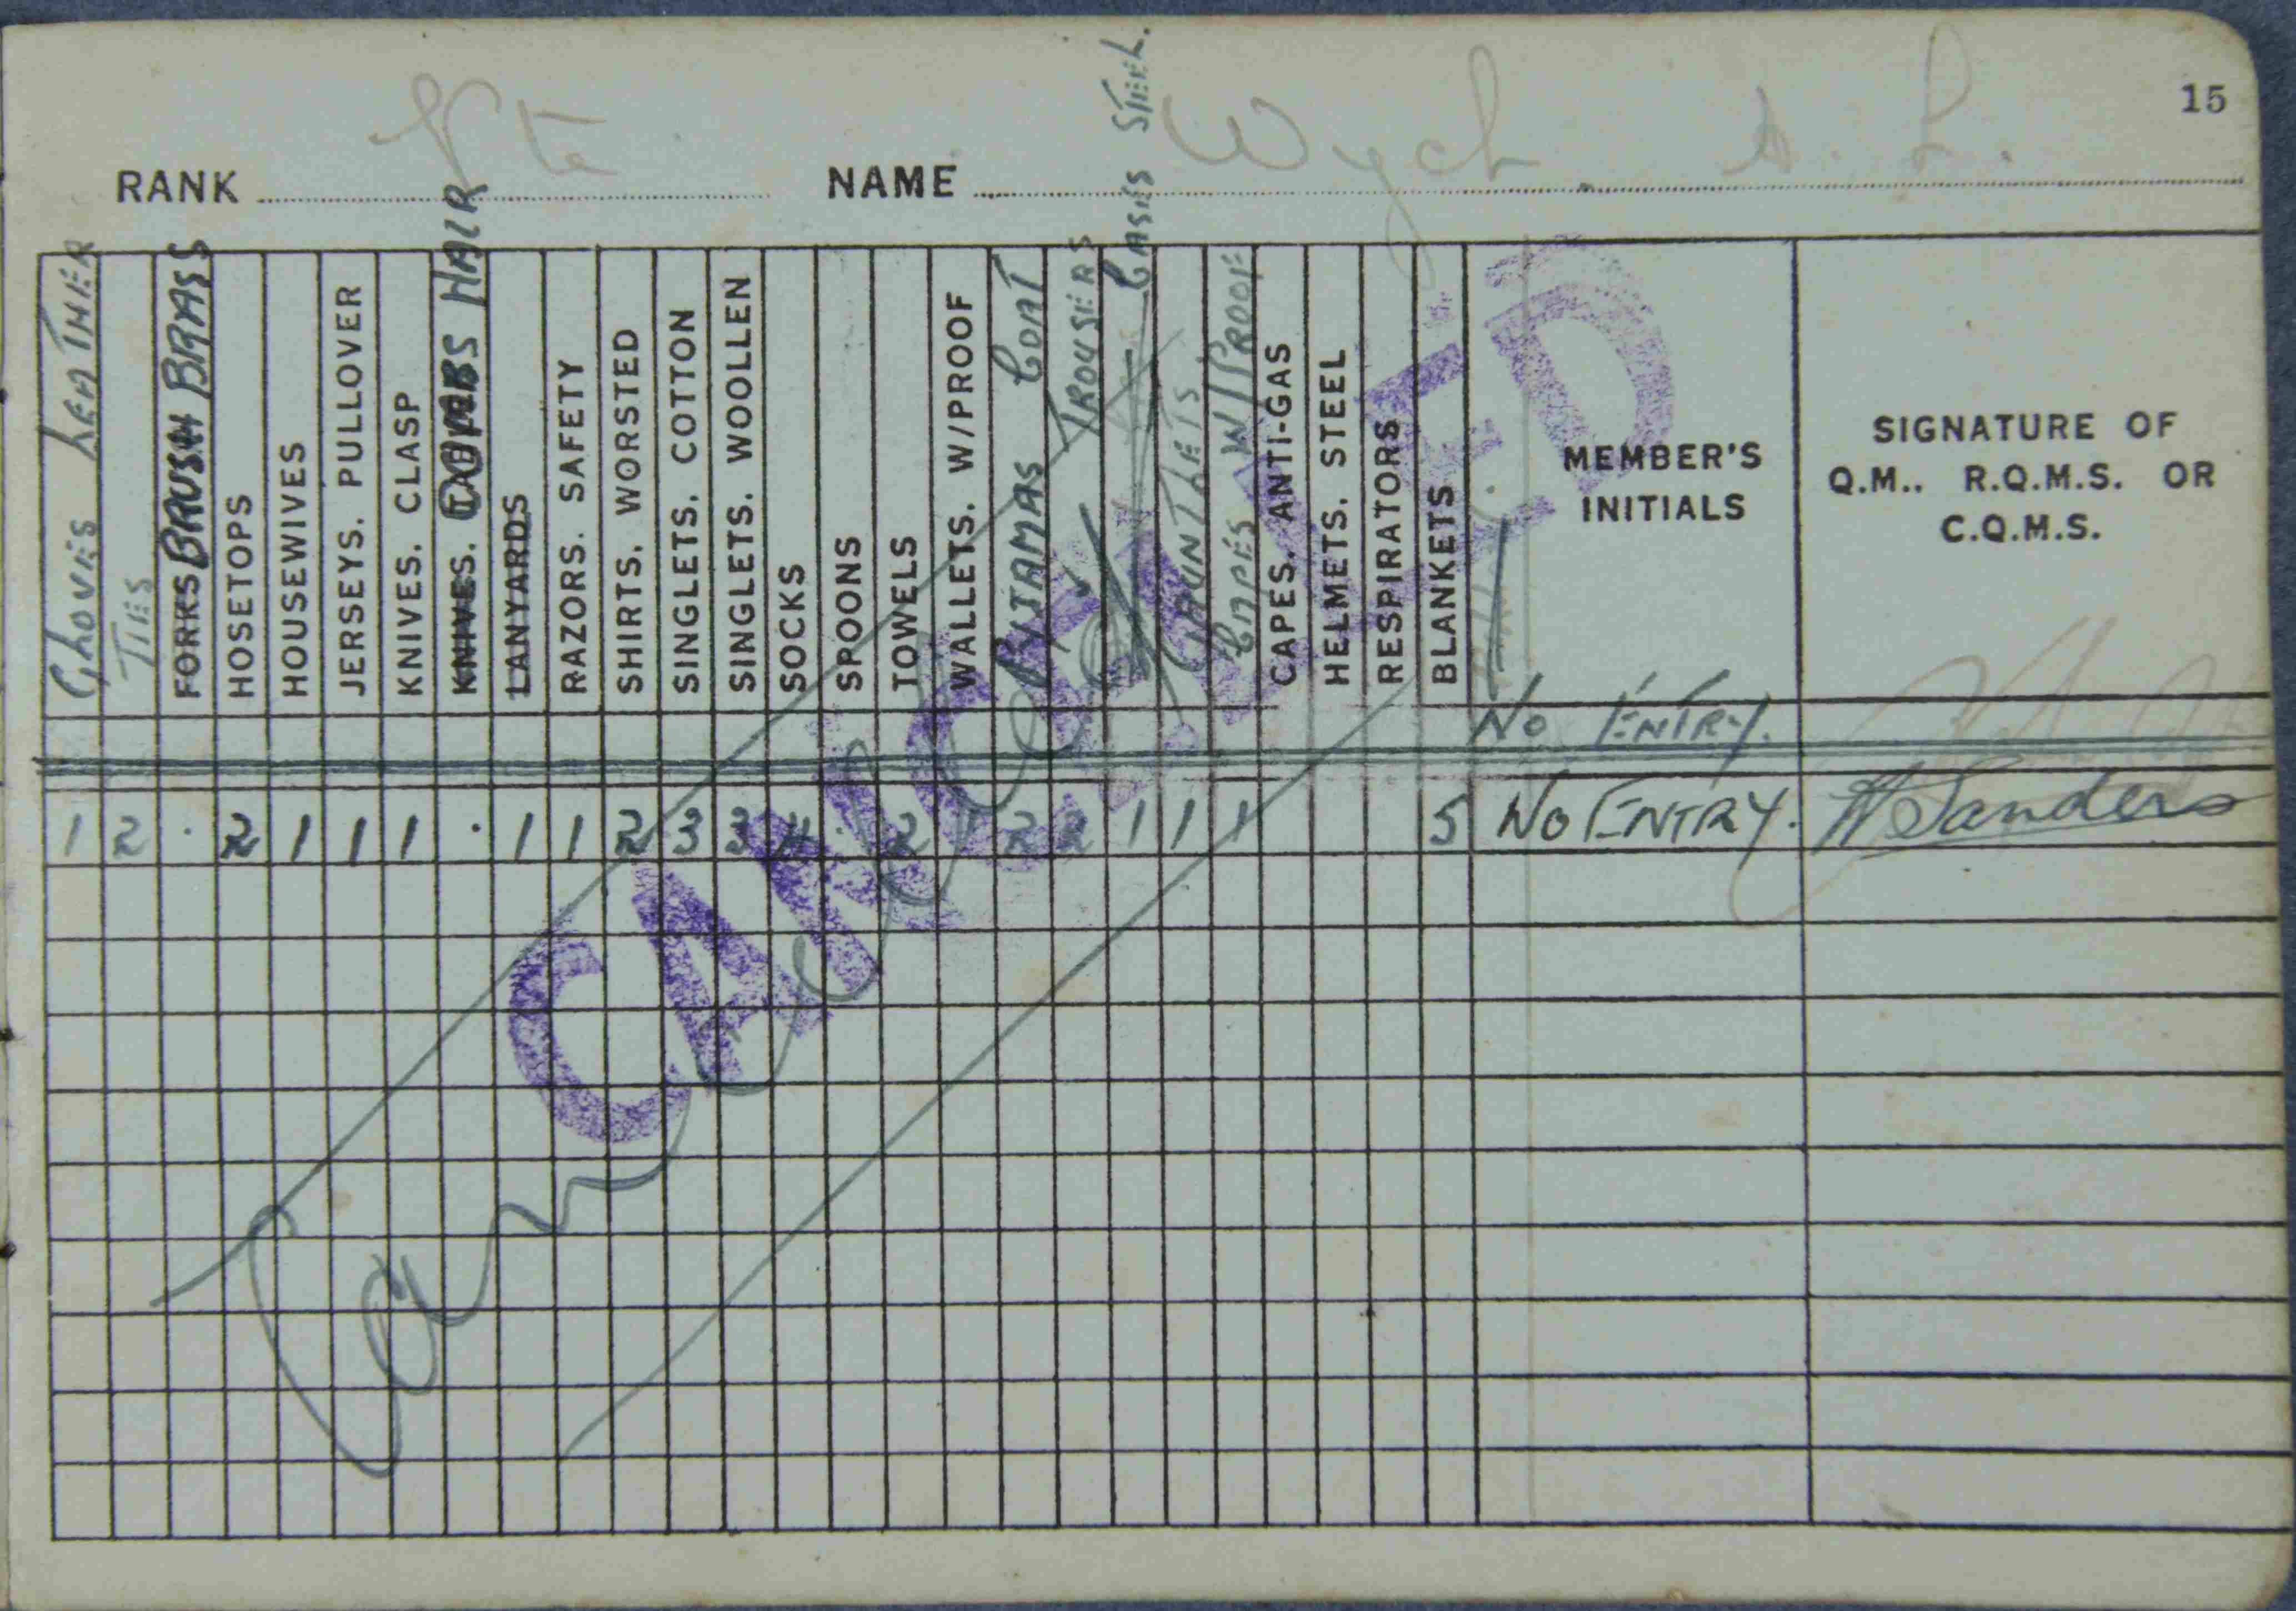 15
RANK Pte NAME Wych. A. L.
GLOVES LEATHER
TIES
FORKS BRUSH BRASS
HOSETOPS
HOUSEWIVES
JERSEYS. PULLOVER
KNIVES. CLASP
KNIVES. COMBS HAIR
LANYARDS
RAZORS. SAFETY
SHIRTS. WORSTED
SINGLETS. COTTON
SINGLETS. WOOLLEN
SOCKS
SPOONS
TOWELS
WALLETS. W/PROOF
PYJAMAS COAT
" TROUSERS
CASES STEEL.
GAUNTLETS
CAPES W/PROOF
CAPES. ANTI-GAS
HELMETS. STEEL
RESPIRATORS
BLANKETS
MEMBER'S
INITIALS
SIGNATURE OF
Q.M.. R.Q.M.S. OR
C.Q.M.S.
NO ENTRY.
1 2 . 2 1 1 1 . 1 1 2 3 3 4 . 2 1 2 2 1 1 1 5 NO ENTRY. Sanders
CANCELLED
Cancelled